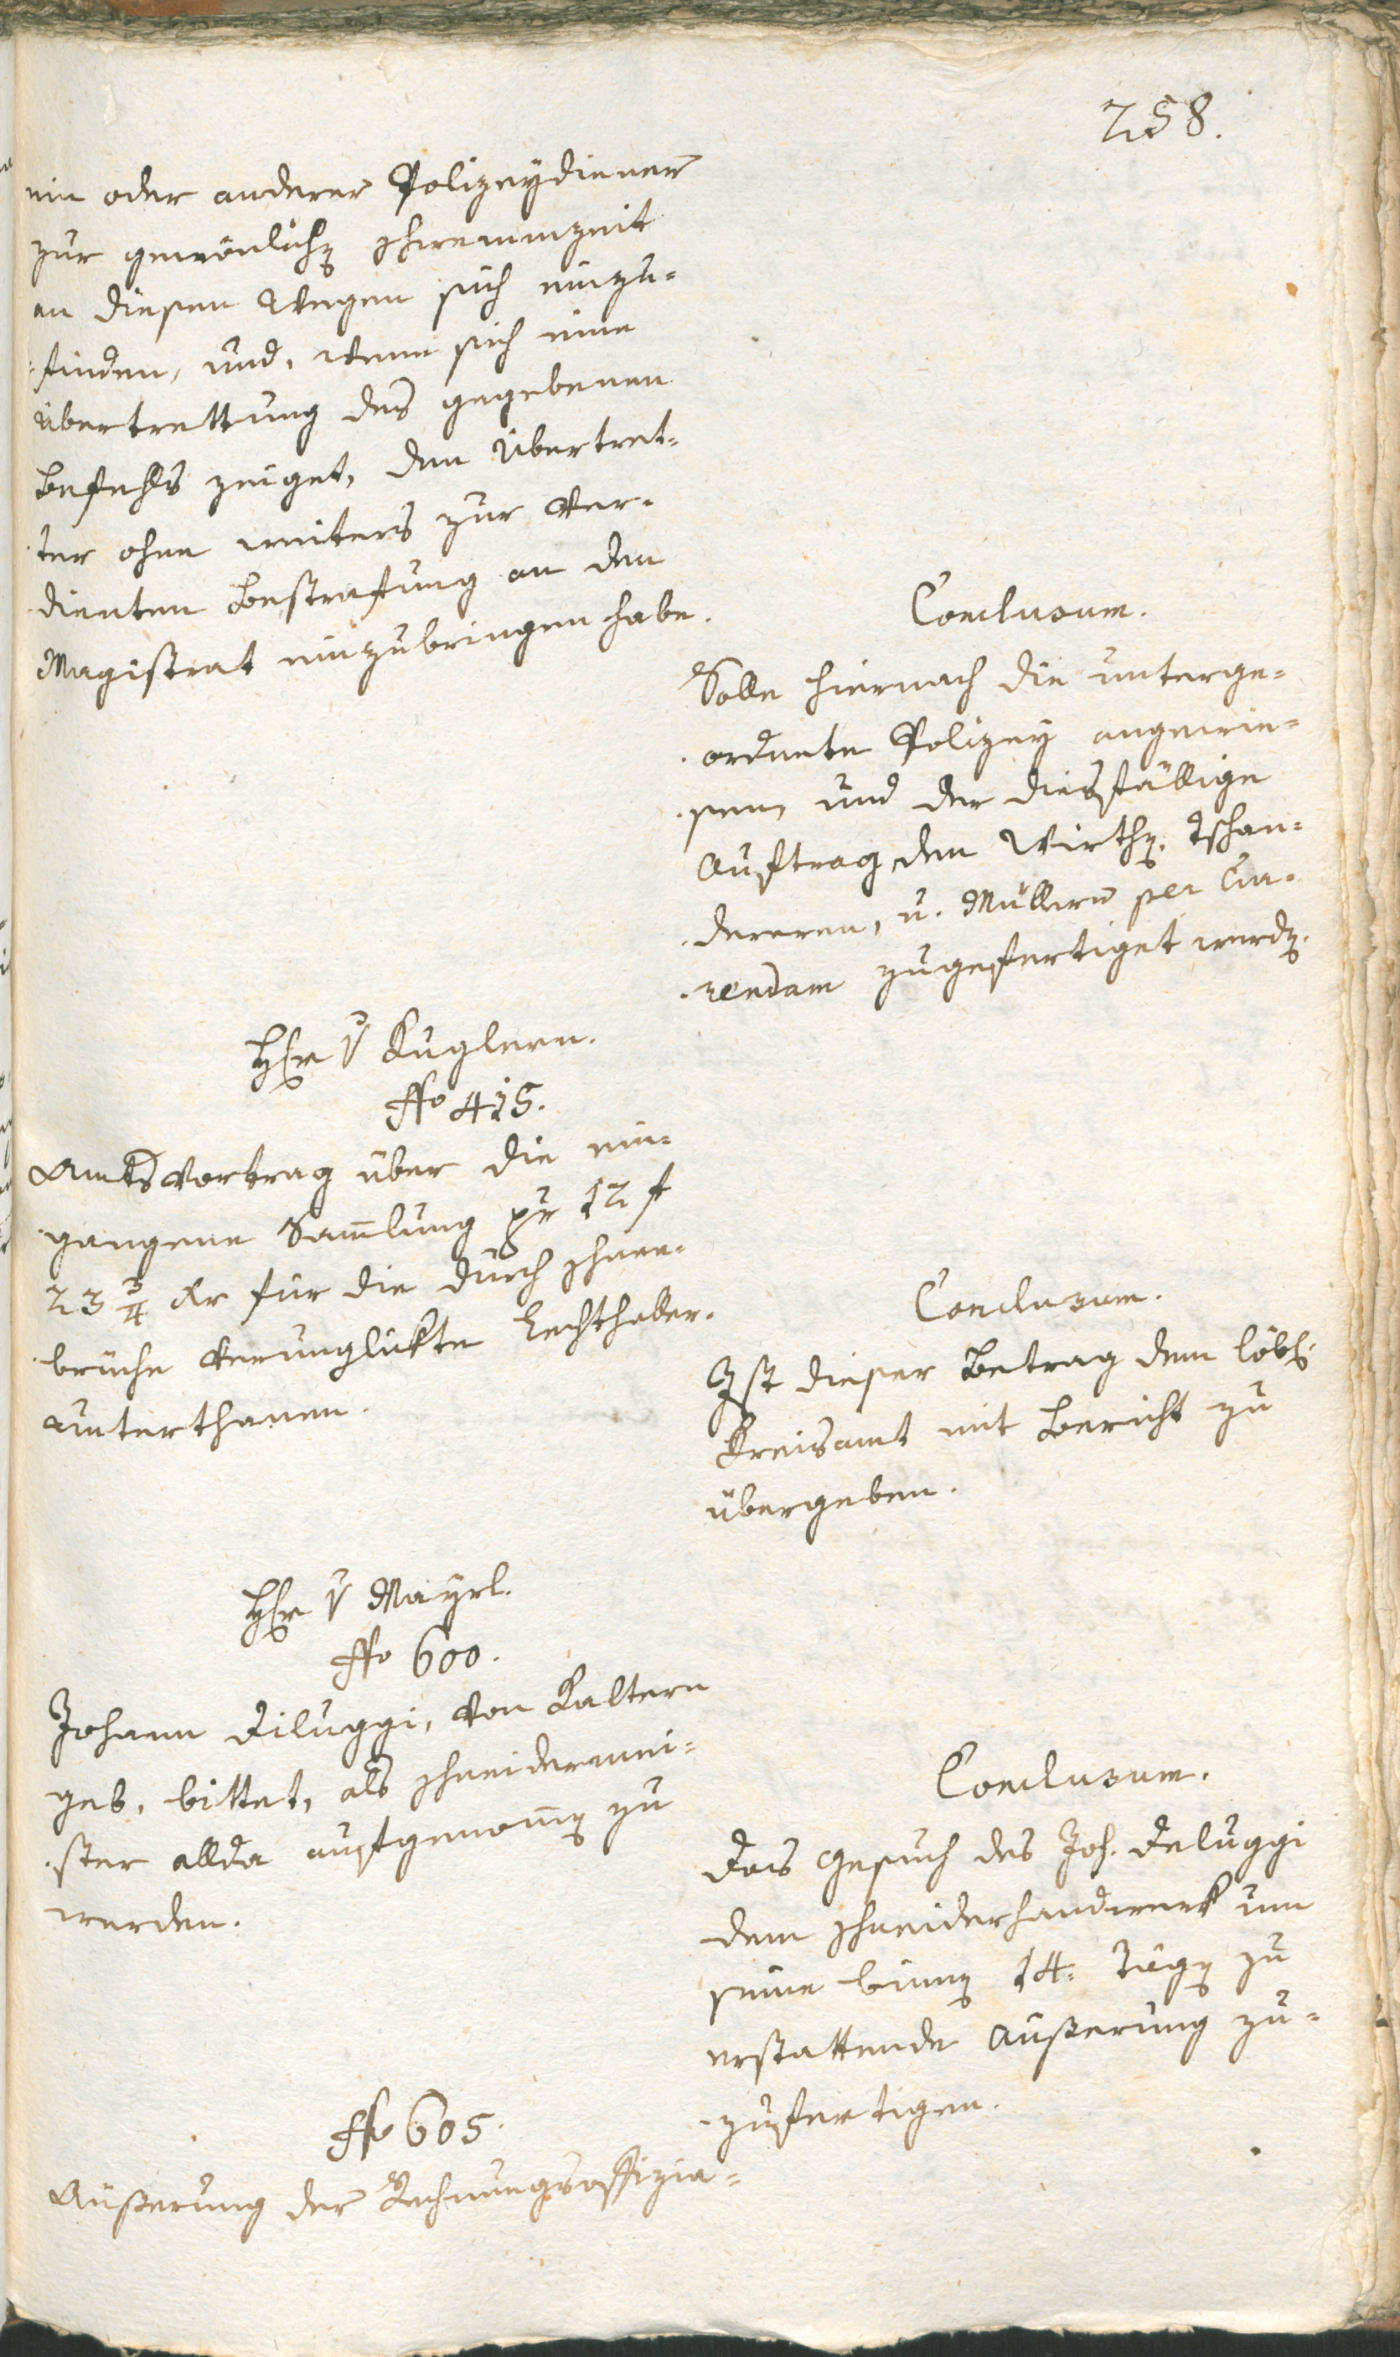 258.
ein oder anderer Polizeydiener
zur gewönlichen Schwemmzeit
an diesen Wegen sich einzu=
=finden, und, wenn sich eine
Übertrettung des gegebenen
Befehls zeiget, den Übertret=
ter ohne weiters zur ver=
dienten Bestrafung an den
Magistrat einzubringen habe.
Conclusum.
Solle hiernach die unterge=
ordnete Polizey angewie=
sen, und der diesfällige
Auftrag den Wirthen, Tschan=
dereren, u. Müllern per Cur=
rendam zugefertiget werden.
Hr v Kuglern.
No 415.
Amtsvortrag über die ein=
gangene Sammlung pr 12 f
23 3/4 Kr für die durch Schnee=
brüche verunglükte Lechthaler=
Unterthanen.
Conclusum.
Ist dieser Betrag dem löbl:
Kreisamt mit Bericht zu
übergeben.
Hr v Mayrl.
No 600.
Johann Diluggi, von Kaltern
geb. bittet, als Schneidermei=
ster allda aufgenommen zu
werden.
Conclusum.
Das Gesuch des Joh. Deluggi
dem Schneiderhandwerk um
seine binnen 14. Tägen zu
erstattende Äußerung zu=
zufertigen.
No 605.
Äußerung der Rechnungsoffizia=